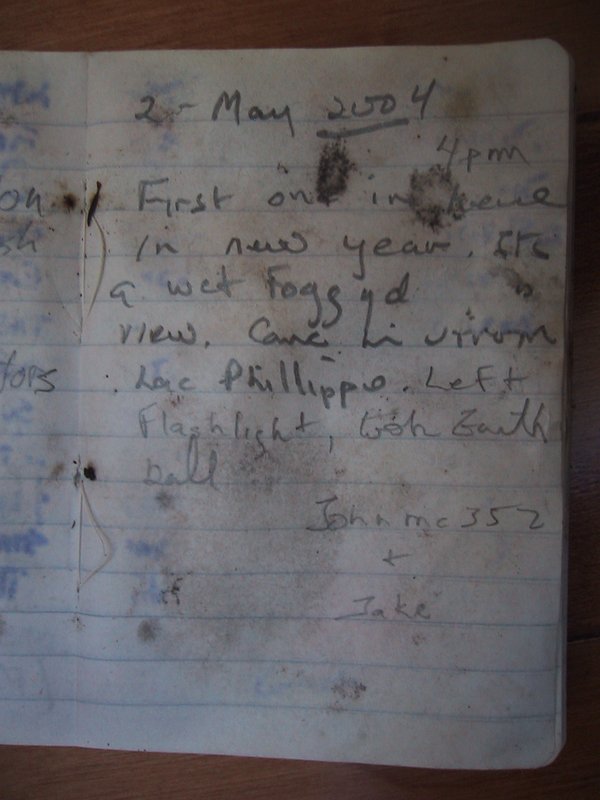 on
sh
tors
2 - May 2004
4pm
First one in here
in new year. Its
a wet Foggy d
view. Came in from
Lac Phillippe. Left
Flashlight, took Earth
ball
Johnmc352
+
Jake